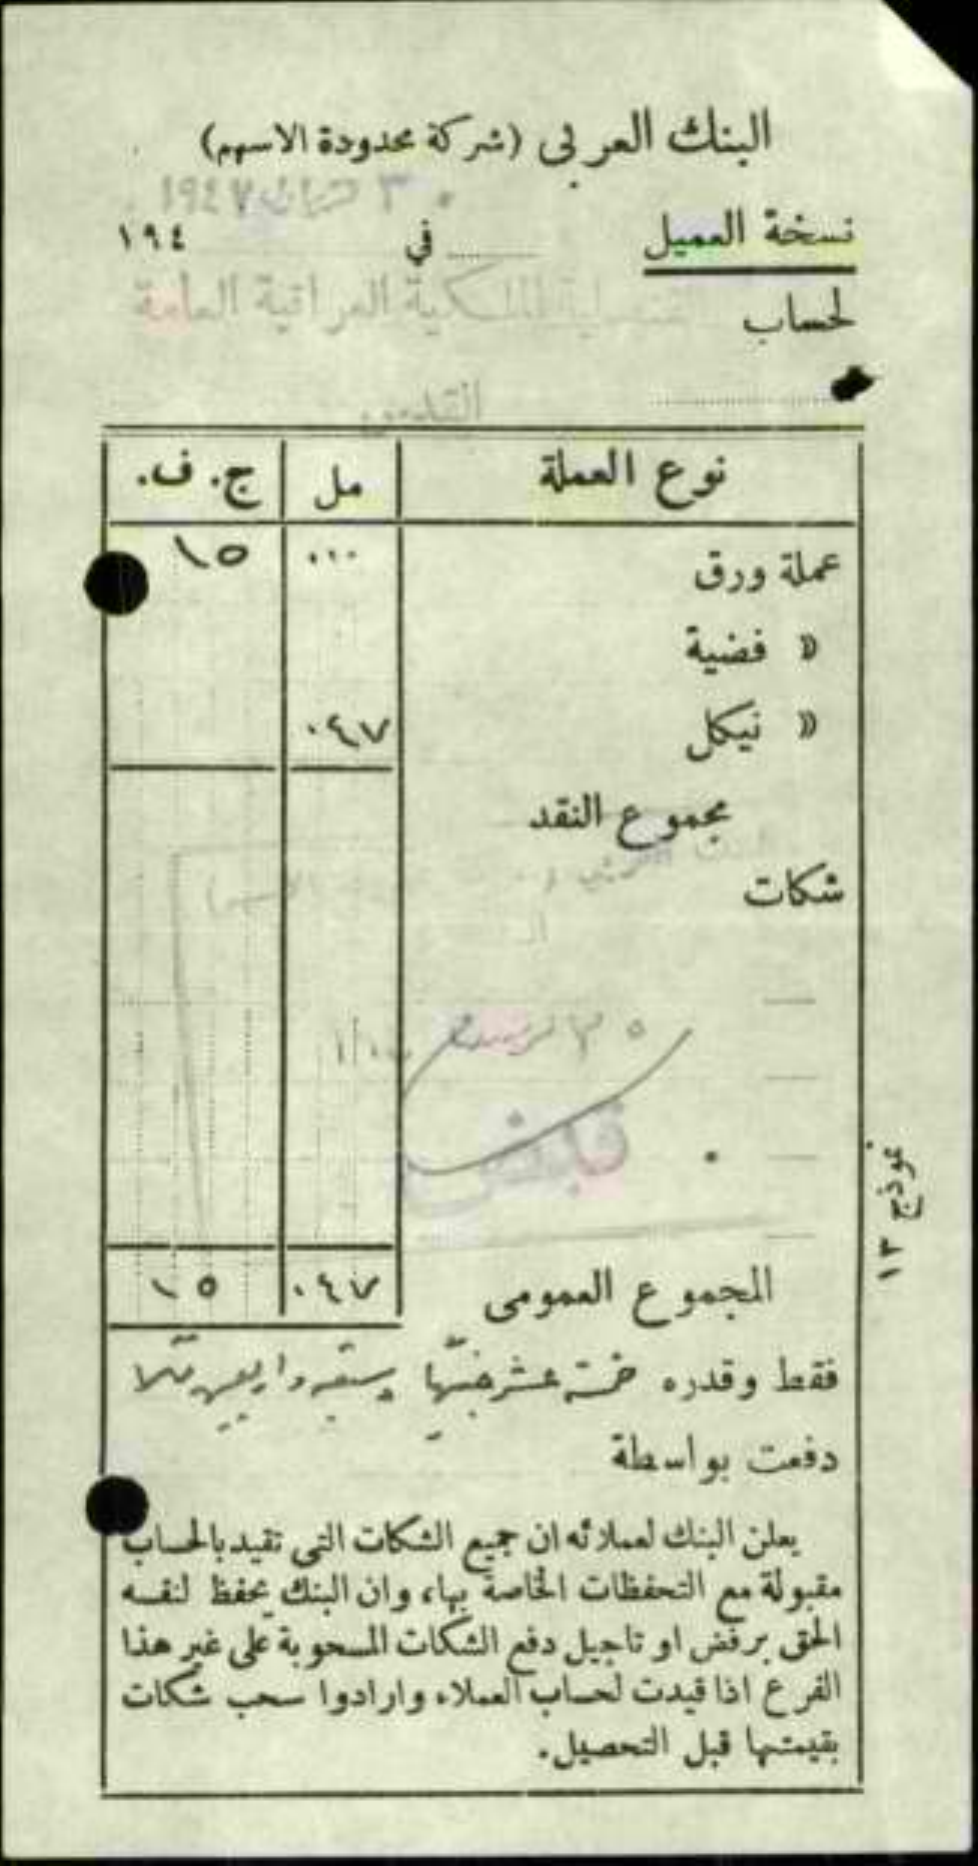 البنك العربي (شركة محدودة الاسهم)
٣٠ حزيران ١٩٤٧
نسخة العميل
في ١٩٤
لحساب القنصلية الملكية العراقية العامة
القدس
نوع العملة مل ج. ف.
عملة ورق ٠٠٠ ١٥
» فضية
» نيكل ٠٤٧
مجموع النقد
شكات
قبض
المجموع العمومى ٠٤٧ ١٥
فقط وقدره خمسة عشر جنيها وسبعة واربعون ملا
دفعت بواسطة
يعلن البنك لعملائه ان جميع الشكات التى تقيد بالحساب
مقبولة مع التحفظات الخاصة بها، وان البنك يحفظ لنفسه
الحق برفض او تاجيل دفع الشكات المسحوبة على غير هذا
الفرع اذا قيدت لحساب العملاء وارادوا سحب شكات
بقيمتها قبل التحصيل.
نموذج ١٣